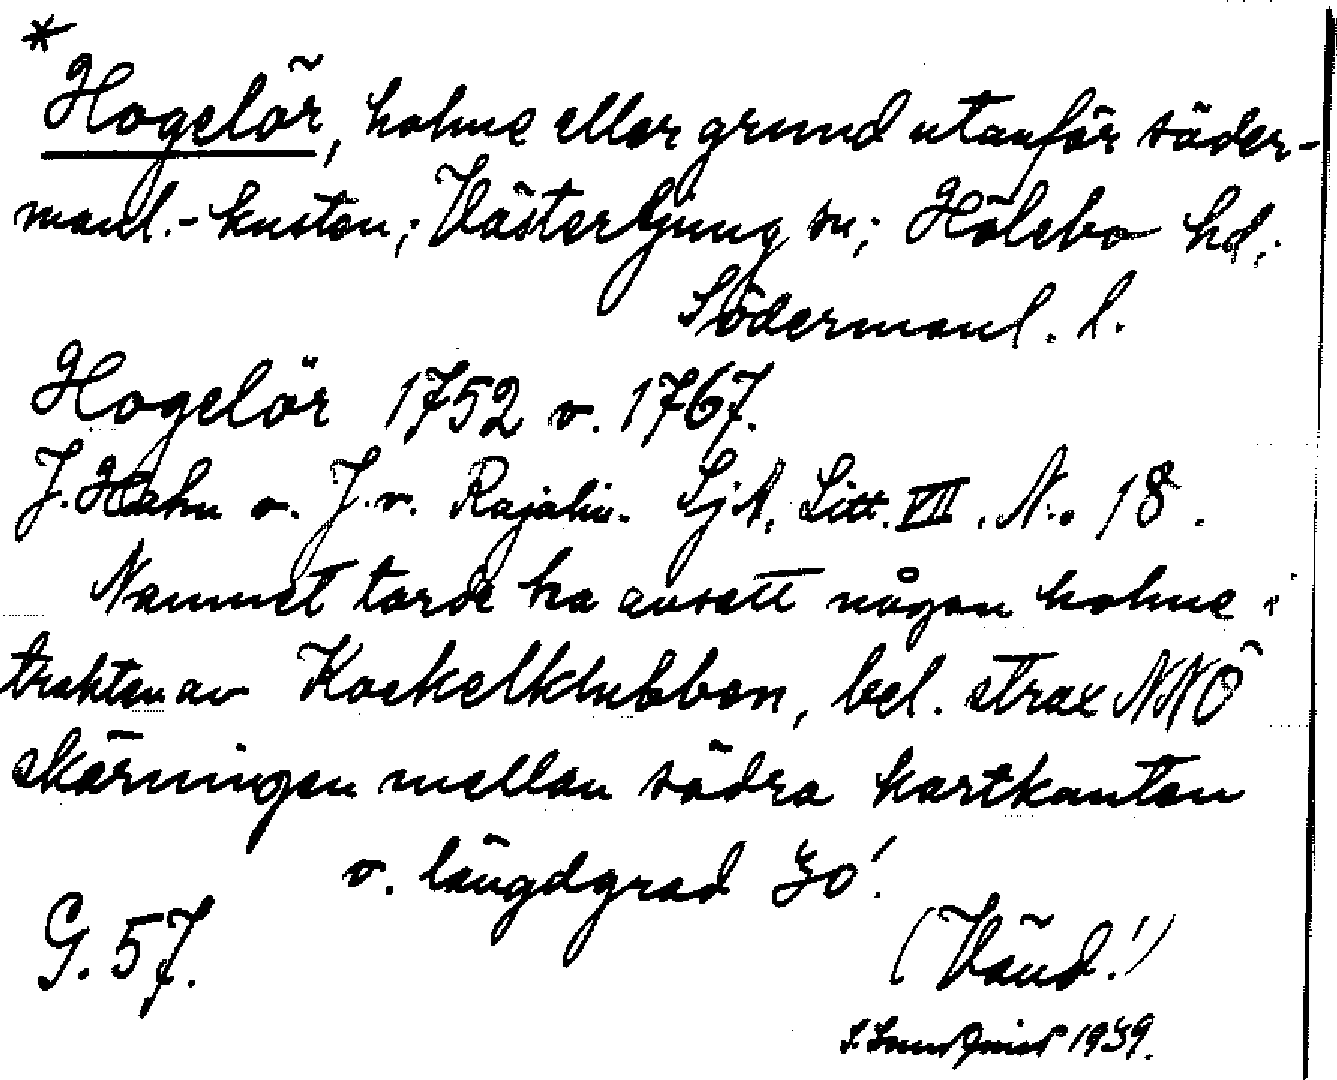 *
Hogelör, holme eller grund utanför söder-
manl.-kusten; Västerljung sn; Hölebo hd;
Södermanl. l.
Hogelör 1752 o. 1767.
J. Hahn o. J. v. Rajalin. SjA, Litt. VII. N:o 18.
Namnet torde ha avsett någon holme i
trakten av Kockelklubben, bel. strax NNÖ
skärningen mellan södra kartkanten
o. längdgrad 30'.
G. 57.
(Vänd!)
1939.